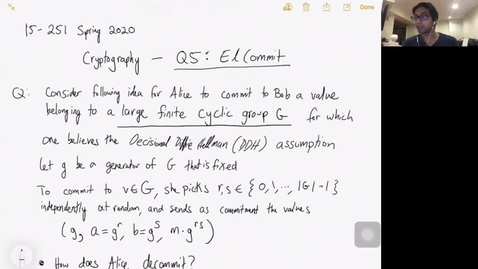 15-251 Spring 2020
Cryptography — Q5: ElCommit
Q. Consider following idea for Alice to commit to Bob a value
belonging to a large finite cyclic group G for which
one believes the Decisional Diffie Hellman (DDH) assumption
Let g be a generator of G that is fixed
To commit to v∈G, she picks r,s ∈ {0,1,..., |G|-1}
independently at random, and sends as commitment the values
(g, a=g^r, b=g^s, m·g^rs)
• How does Alice decommit?
Done